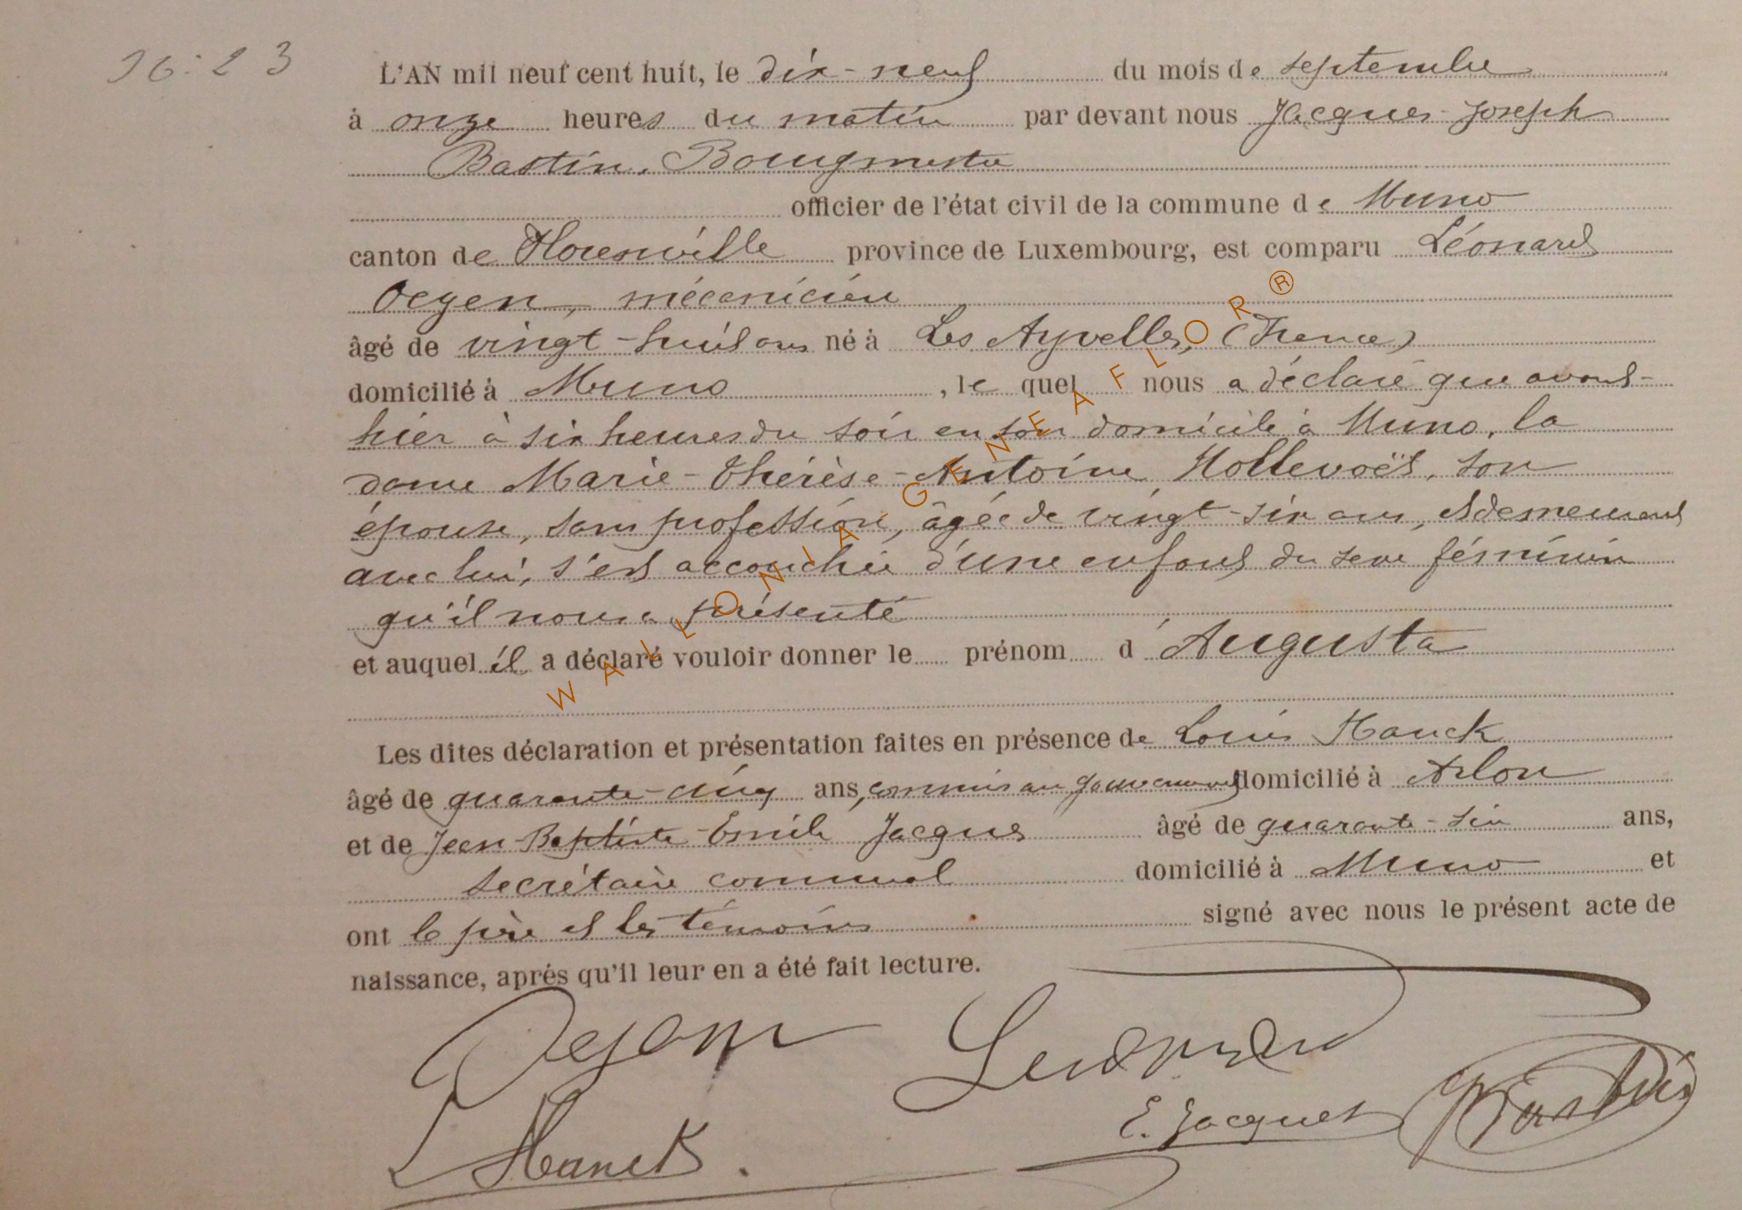 16:23
L'AN mil neuf cent huit, le dix-neuf du mois de septembre
à onze heures du matin par devant nous Jacques-Joseph
Bastin, Bourgmestre
officier de l'état civil de la commune de Muno
canton de Florenville province de Luxembourg, est comparu Léonard
Oeyen, mécanicien
âgé de vingt-huit ans né à Les Ayvelles, (France)
domicilié à Muno, le quel nous a déclaré que avant-
hier à six heures du soir en son domicile à Muno, la
dame Marie-Thérèse-Antoine Hollevoët, son
épouse, sans profession, âgée de vingt-six ans, et demeurant
avec lui, s'est accouchée d'une enfant du sexe féminin
qu'il nous a présenté
et auquel il a déclaré vouloir donner le prénom d'Augusta
Les dites déclaration et présentation faites en présence de Louis Hanck
âgé de quarante-cinq ans, commis au gouvernement domicilié à Arlon
et de Jean-Baptiste-Emile Jacques âgé de quarante-six ans,
secrétaire communal domicilié à Muno et
ont le père et les témoins signé avec nous le présent acte de
naissance, aprés qu'il leur en a été fait lecture.
Oeyen Leonard
L Hanck. E. Jacques JBastin
WALLONIA GENEAFLOR ®